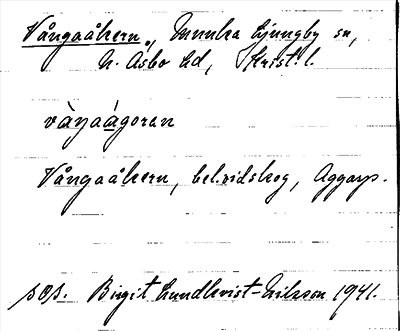 Vångaåkern, Munka Ljungby sn,
N. Åsbo hd, Krist. l.
vàŋaágoran
Vångaåkern, bel. vid skog, Aggarp.
sos. Birgit Lundkvist-Nilsson 1941.